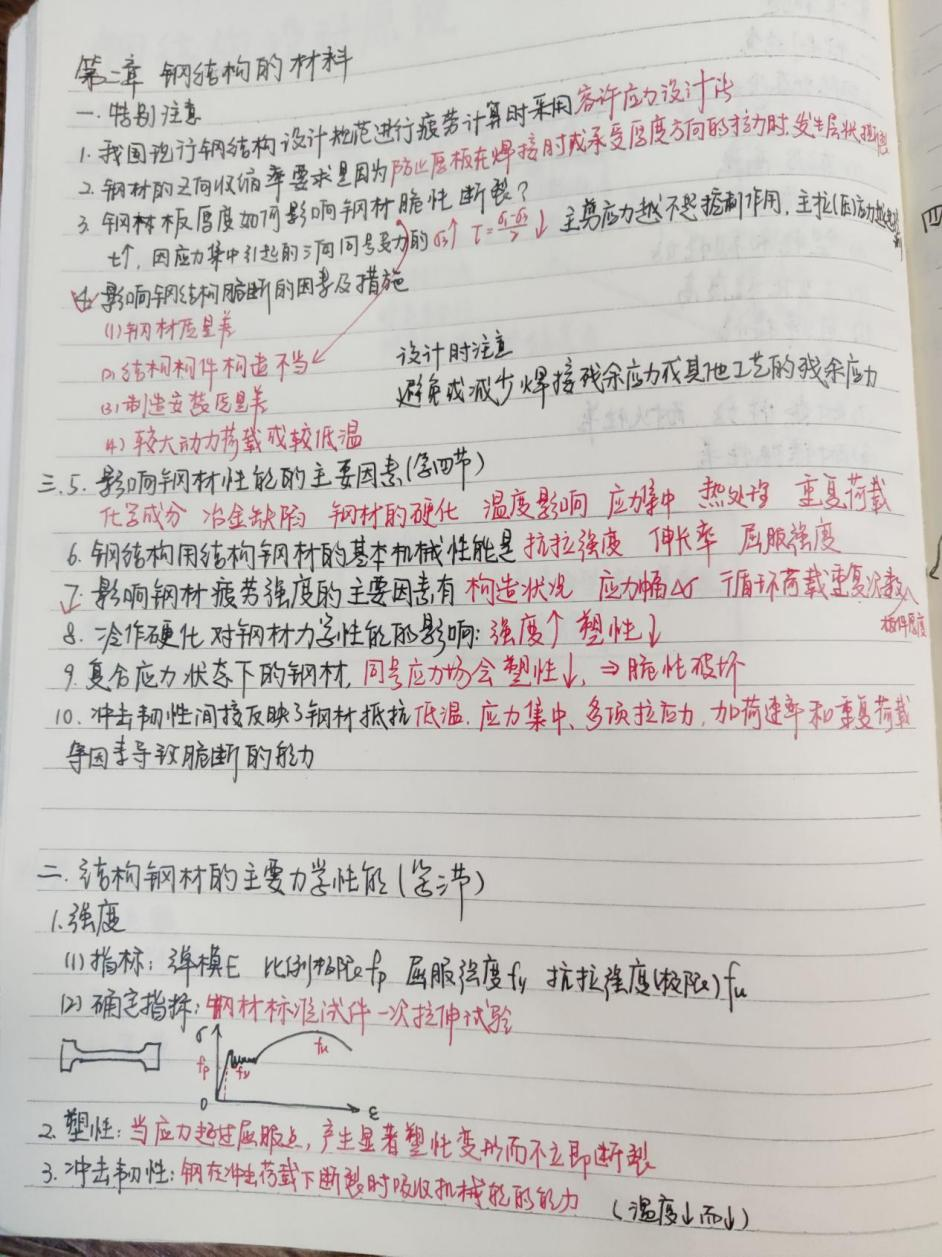 第二章 钢结构的材料
一. 特别注意
1. 我国现行钢结构设计规范进行疲劳计算时采用容许应力设计法
2. 钢材的Z向收缩率要求是因为防止厚板在焊接时或承受厚度方向的拉力时发生层状撕裂
3. 钢材板厚度如何影响钢材脆性断裂?
t↑, 因应力集中引起的三向同号受力的σ3↑ τ=(σ1-σ3)/2↓ 主剪应力越不起控制作用, 主拉(压)应力
4. 影响钢结构脆断的因素及措施
(1) 钢材质量差
(2) 结构构件构造不当 设计时注意
避免或减少焊接残余应力或其他工艺的残余应力
(3) 制造安装质量差
(4) 较大动力荷载或较低温
三. 5. 影响钢材性能的主要因素(第四节)
化学成分 冶金缺陷 钢材的硬化 温度影响 应力集中 热处理 重复荷载
6. 钢结构用结构钢材的基本机械性能是 抗拉强度 伸长率 屈服强度
7. 影响钢材疲劳强度的主要因素有 构造状况 应力幅Δσ 循环荷载重复次数
板件厚度
8. 冷作硬化对钢材力学性能的影响: 强度↑ 塑性↓
9. 复合应力状态下的钢材, 同号应力场会塑性↓, ⇒脆性破坏
10. 冲击韧性间接反映了钢材抵抗低温. 应力集中、多项拉应力, 加荷速率和重复荷载
等因素导致脆断的能力
二. 结构钢材的主要力学性能(第三节)
1. 强度
(1) 指标: 弹模E 比例极限fp 屈服强度fy 抗拉强度(极限)fu
(2) 确定指标: 钢材标准试件一次拉伸试验
σ fp fy fu
0 ε
2. 塑性: 当应力超过屈服点, 产生显著塑性变形而不立即断裂
3. 冲击韧性: 钢在冲击荷载下断裂时吸收机械能的能力 (温度↓而↓)